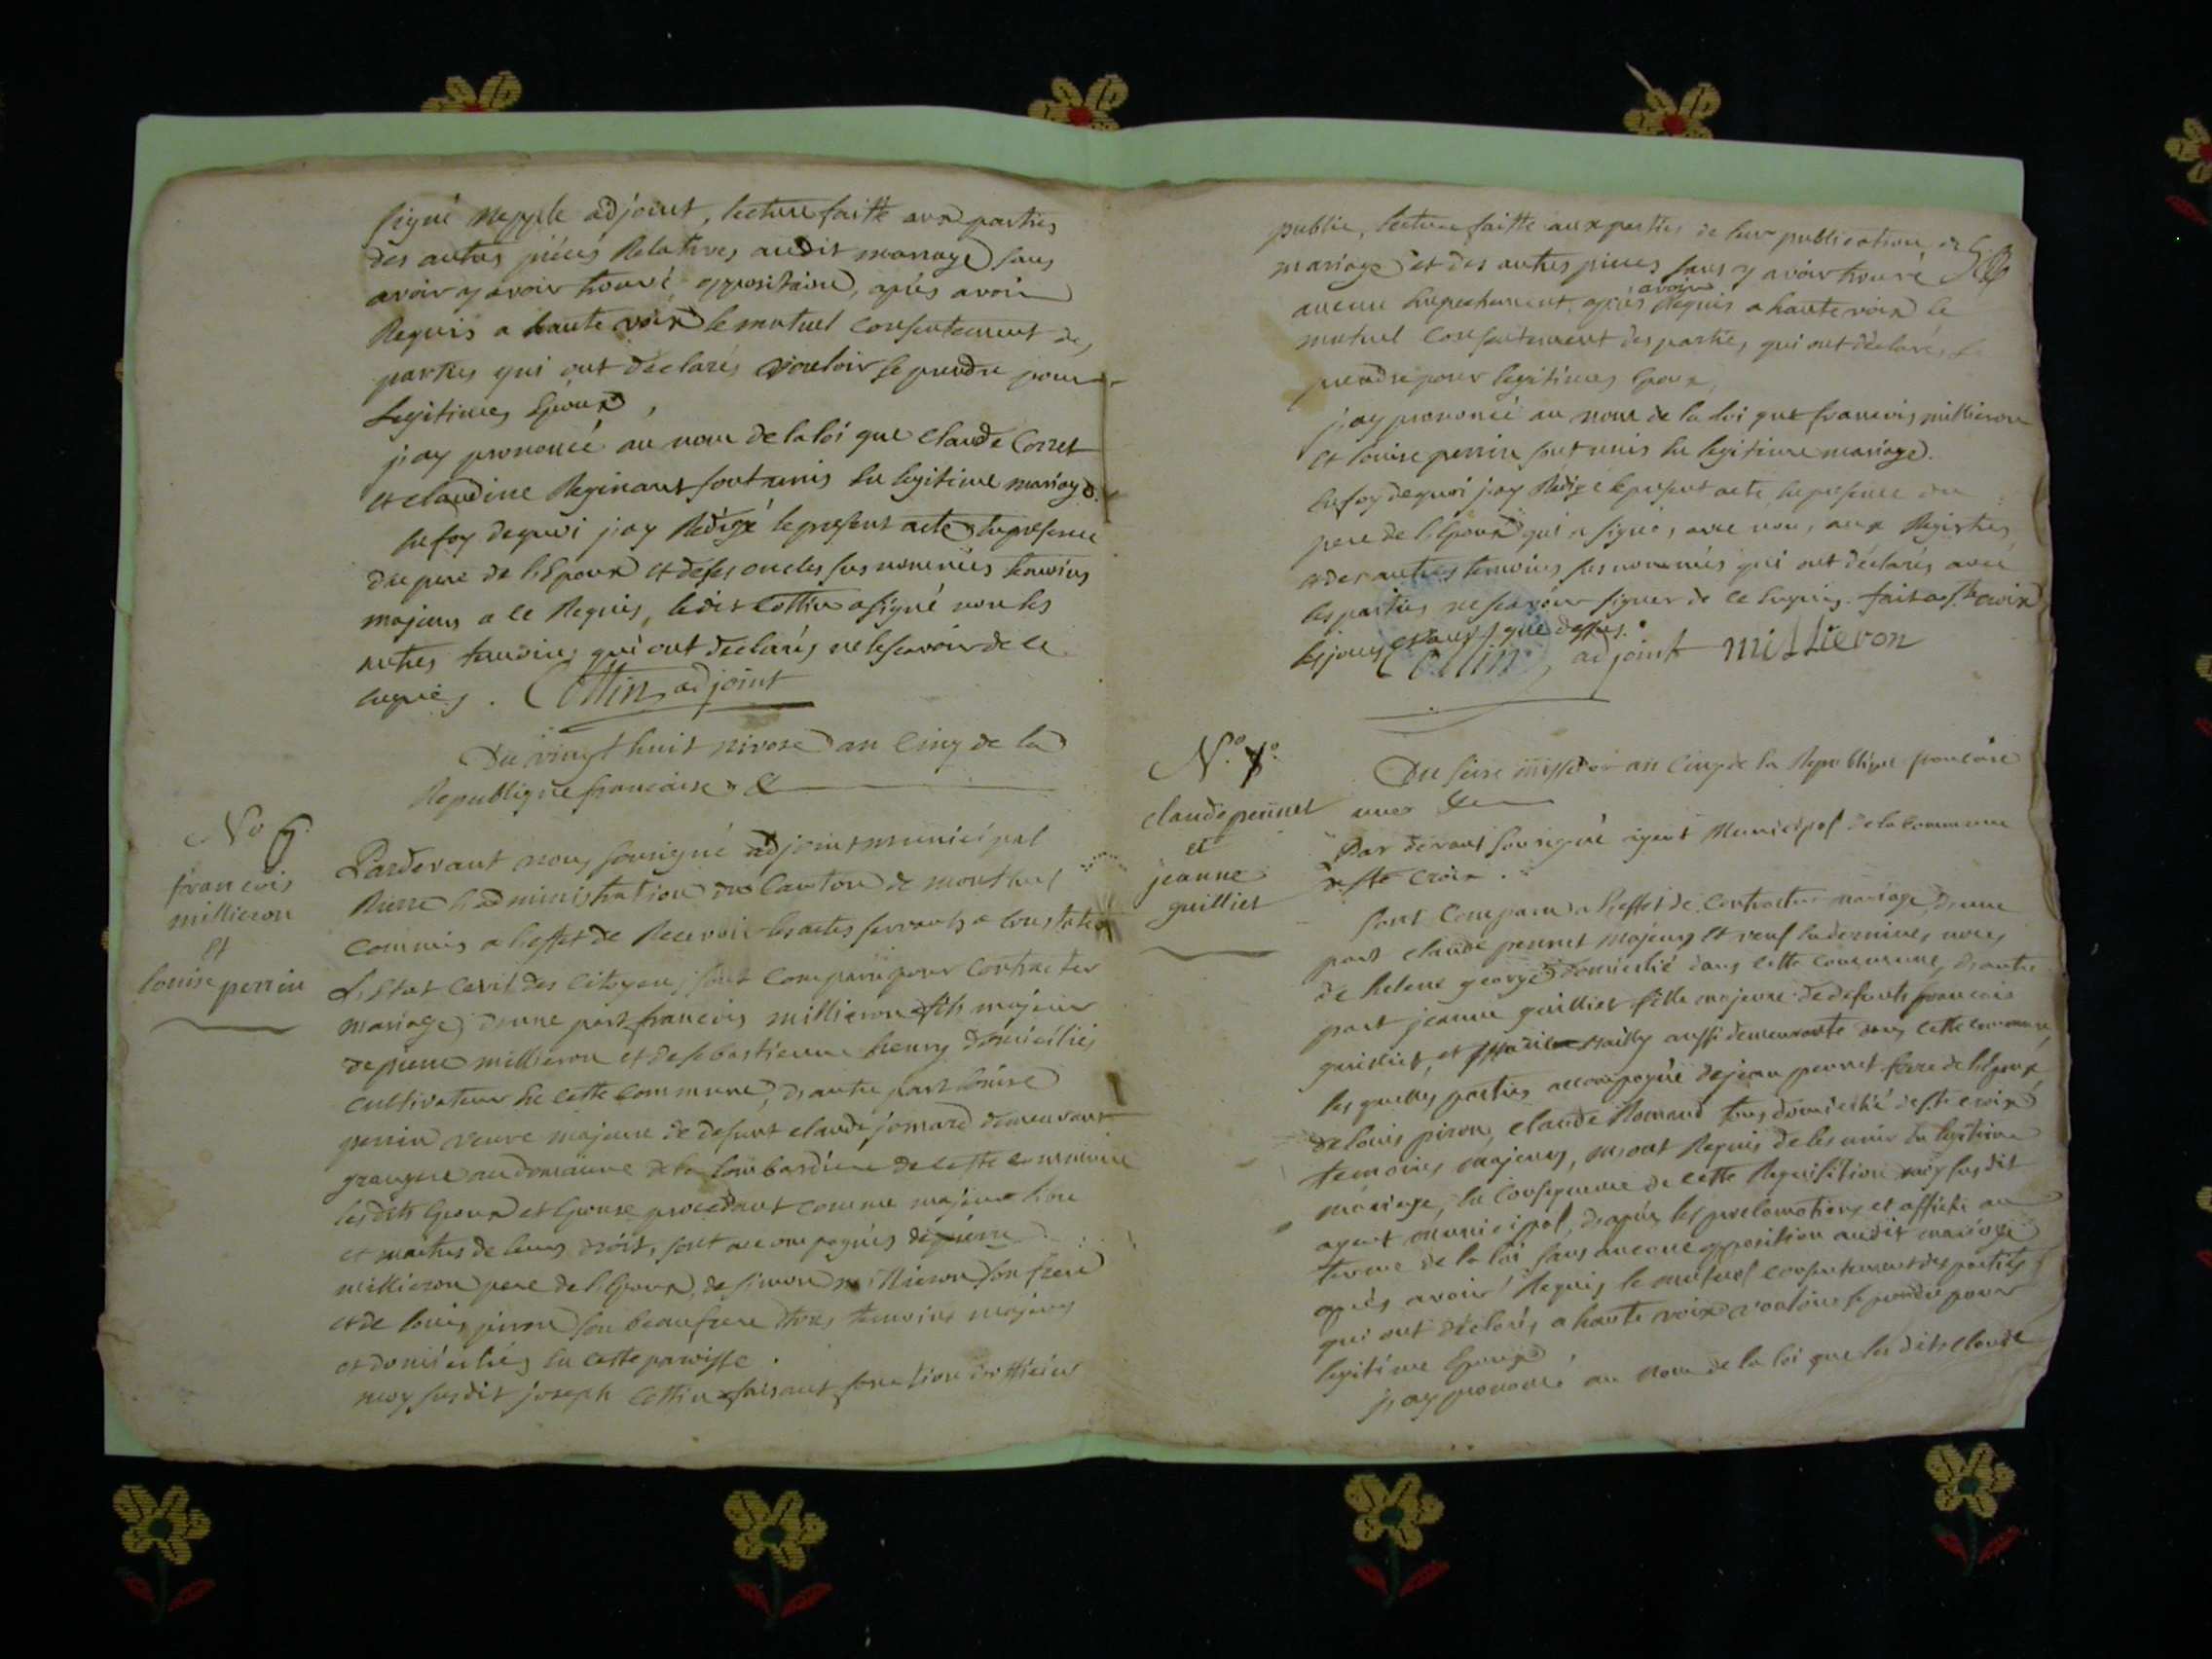 signé Nepple adjoint, lecture faitte aux parties
des autres piéces Relatives audit mariage sans
avoir y avoir trouvé opposition, apiés avoir
Requis a haute voix le mutuel consentement des
parties qui ont déclarés vouloir se prendre pour
Legitimes Epoux,
j'ay prononcé au nom de la loi que claude Corret
et claudine Reginant sont unis en legitime mariage.
En foy dequoi j'ay Rédigé le present acte en presence
du pere de l'Epoux et de ses oncles sus nommés temoins
majeurs a ce Requis, ledit Cottin a signé non les
autres temoins qui ont declarés ne le scavoir de ce
enquis. Cottin adjoint
Du vingt huit nivose an Cinq de la
Republique francaise &
No 6.
francois
millieron
et
louise perrin
Pardevant nous sousigné adjoint municipal
Pierre l'administration du Canton de montluel
commis a l'effet de Recevoir les actes servants a constater
L'Etat Civil des Citoyens, sont comparu pour contracter
mariage, d'une part francois millieron fils majeur
de pierre millieron et de sebastienne henry domiciliés
cultivateur en cette Commune, d'autre part louise
perrin veuve majeure de defunt claude jomard demeurant
grangere au domaine de la lombardiere de cette commune
les dits Epoux et Epouse procedant comme majeur libre
et maitres de leurs droits, sont accompagnés de pierre
millieron pere de l'Epoux, de simon millieron son frere
et de louis piron son beaufrere tous temoins majeurs
et domiciliés en cette paroisse.
moy susdit joseph Cottin faisant fonction d'officier
public, lecture faitte aux parties de leur publication de
mariage et des autres pieces sans y avoir trouvé
aucun empechement, apiés avoir Requis a haute voix le
mutuel consentement des parties, qui ont déclarés se
prendre pour legitimes Epoux,
j'ay prononcé au nom de la loi que francois millieron
et louise perrin sont unis en legitime mariage.
En foy dequoi j'ay Rédigé le present acte en presence du
pere de l'Epoux qui a signé, avec nous, aux Registres
et des autres temoins sus nommés qui ont déclarés avec
les parties ne scavoir signer de ce Enquis. fait a Ste croix
les jours et an que dessus.
Cottin, adjoint millieron
N.o 7.o
claude perrinet
et
jeanne
guilliet
Du seise messidor an Cinq de la Republique francaise
une &c
Par devant sousigné agent Municipal de la commune
de Ste Croix.
sont Comparu a l'effet de Contracter mariage, d'une
part claude pennet majeur et veuf en dernieres noces
de helene george domicilié dans cette commune, d'autre
part jeanne guilliet fille majeure de defunts francois
guilliet, et Marie mailly aussi demeurante dans cette commune,
les quelles parties accompagné de jean pennet frere de l'Epoux,
de louis piron, claude Romand tous domicilié de Ste croix
temoins majeurs, m'ont Requis de les unir en legitime
mariage, En consequence de cette Requisition moy susdit
agent municipal, d'apiés les proclamations et affiche au
terme de la loi sans aucune opposition audit mariage
apiés avoir Requis le mutuel consentement des parties
qui ont déclarés a haute voix vouloir se prendre pour
legitime Epoux
j'ay prononcé au nom de la loi que les dits claude